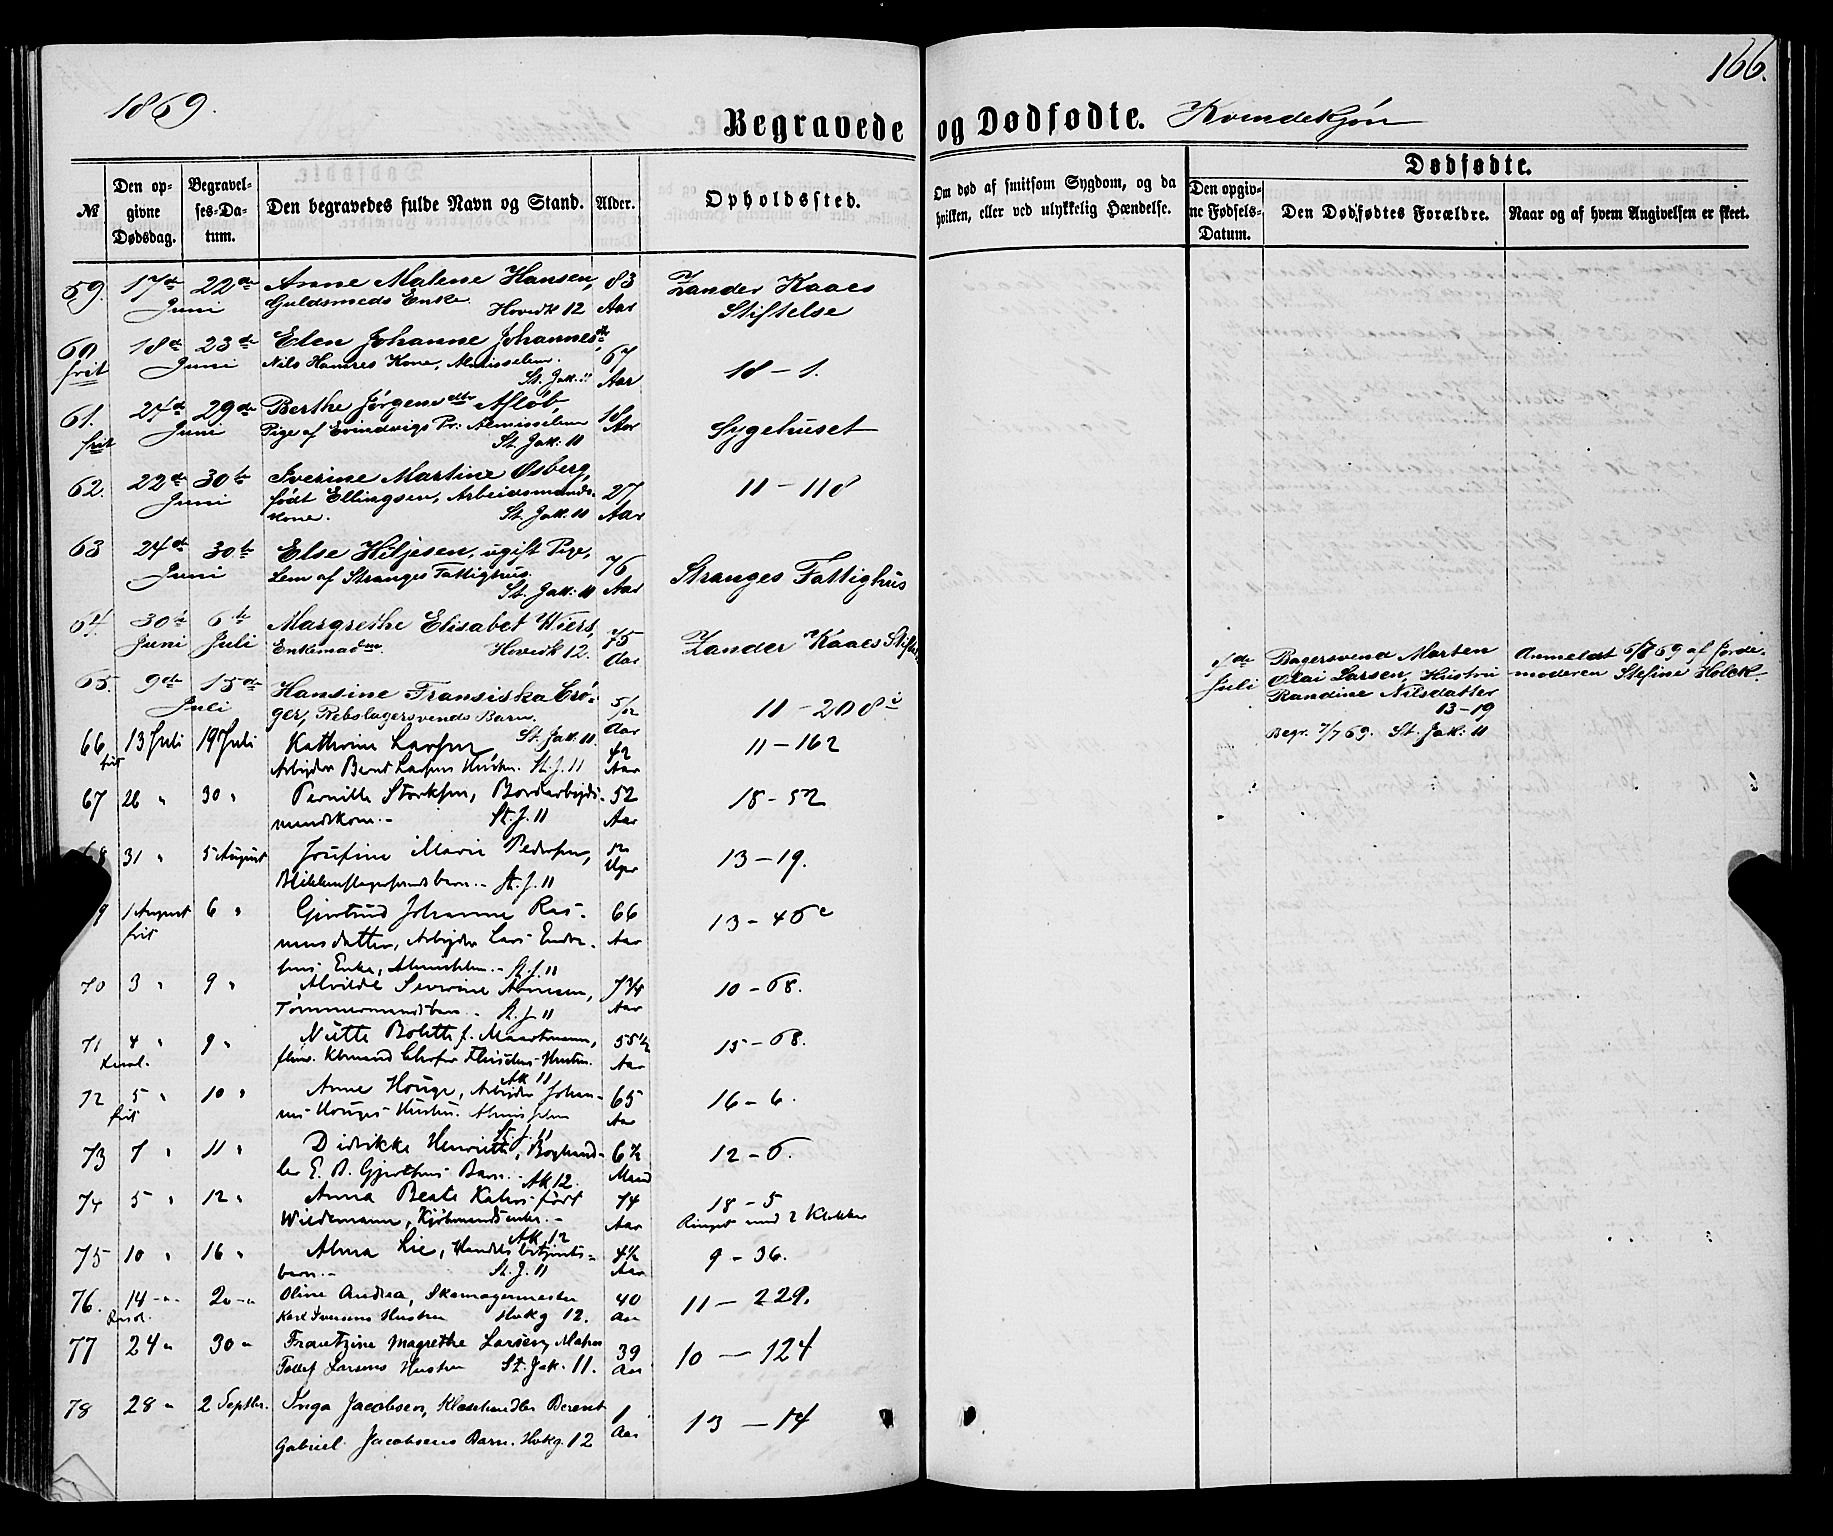 166.
1869.
Begravede og Dødfødte. Kvindekjøn
№
Den opgivne Dødsdag.
Begravelses-Datum.
Den begravedes fulde Navn og Stand.
Alder.
Opholdssted.
Om død af smitsom Sygdom, og da hvilken, eller ved ulykkelig Hændelse.
Dødfødte.
Den opgivne Fødsels-Datum.
Den Dødfødtes Forældre.
Naar og af hvem Angivelsen er skeet.
59. 17de 22de Anne Malene Hansen, 83 Zander Kaaes
Juni Guldsmeds Enke Hovedk 12 Aar Stiftelse
60 18de 23de Elen Johanne Johannesdr 67
frit Juni Nils Hamres Kone, Almisselem. Aar 18 - 1.
St. Jak. 11
61. 24de 29de Berthe Jørgensdtr Afløb, 18
frit Juni Pige af Evindvigs Pr: Almisselem Aar Sygehuset
St. Jak: 11
62. 22de 30te Iverine Martine Osberg, 27 11 - 118
Juni født Ellingsen, Arbeidsmands- Aar
kone. St. Jak. 11
63 24de 30te Else Hiljesen, ugift Pige, 76
Juni Lem af Stranges Fattighus. Aar Stranges Fattighus
St. Jak: 11
64. 30te 6te Margrethe Elisabet Wiers, 75 Zander Kaaes Stiftelse
Juni Juli Enkemadm Hovedk 12. Aar
65. 9de 15de Hansine Fransiska Crø- 5/12
Juli ger, Rebslagersvends Barn. Aar 11 - 208 i
St. Jak: 11.
7de Bagersvend Morten Anmeldt 6/7 69 af Jorde-
Juli Olai Larsen, Hustru moderen Stefine Holck.
Randine Nilsdatter
13-19
Begr. 7/7 69. St. Jak: 11
66. 13 Juli 19 Juli Kathrine Larsen 42 11 - 162
frit Arbejder Bernt Larsens Hustru. St. J. 11 Aar
67 26 " 30 " Pernille Storksen, Bordarbejds- 52 18 - 52
mandskone.- St. J. 11 Aar
68 31 " 5 August Josefine Marie Pedersen, 12 13 - 19.
Blikkenslagersvends barn.- St. J. 11 Uger
69 1 August 6 " Gjertrud Johanne Ras- 66 13 - 46 c
frit musdatter, Arbejder Lars Endre- Aar
sens Enke, Almisselem.- St. J. 11
70 3 " 9 " Alvilde Severine Arnesen, 7 3/4 10 - 68.
Tømmermandsbarn.- St. J. 11 Aar
71 4 " 9 " Bolette f. Maartmann, 55 1/2 15 - 68.
Hustru. Aar
Ak 11
72 5 " 10 " Anne Houge, Arbejder Johan- 65 16 - 6.
frit nes Houges Hustru. Almisselem Aar
St. J. 11
73 7 " 11 " Didrikke Henriette, Boghand- 6 1/2 12 - 6.
ler E. B. Gjertsens Barn.- Ak 12. Maaned
74 5 " 12 " Anna Beate Kahrs født 74 18 - 5
Wiedemann, Kjøbmandsenke.- Aar Ringet med 2 Klokker
Ak. 12
75 10 " 16 " Alma Lie, Handelsbetjents- 4 1/2 9 - 36.
barn.- St. J. 11 Aar
76. 14 " 20 " Oline Andrea, Skomagermester 40 11 - 229.
Karl Iversens Hustru Hvkg 12. Aar
77 24 " 30 " Frantzine Magrethe Larsen, Matros 39 10 - 124
Tollef Larsens Hustru St. Jak. 11. Aar
78 28 " 2 Septbr. Inga Jacobsen, Klæshandler Berent 1 13 - 14
Gabriel Jacobsens Barn. Hvkg. 12 Aar